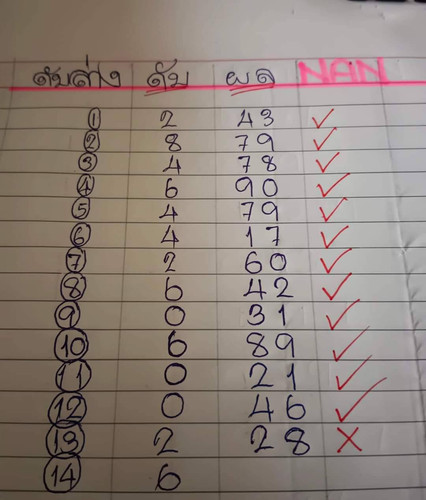 ดับล่าง ดับ ผล NAN
1 2 43 ✓
2 8 79 ✓
3 4 78 ✓
4 6 90 ✓
5 4 79 ✓
6 4 17 ✓
7 2 60 ✓
8 6 42 ✓
9 0 31 ✓
10 6 89 ✓
11 0 21 ✓
12 0 46 ✓
13 2 28 X
14 6